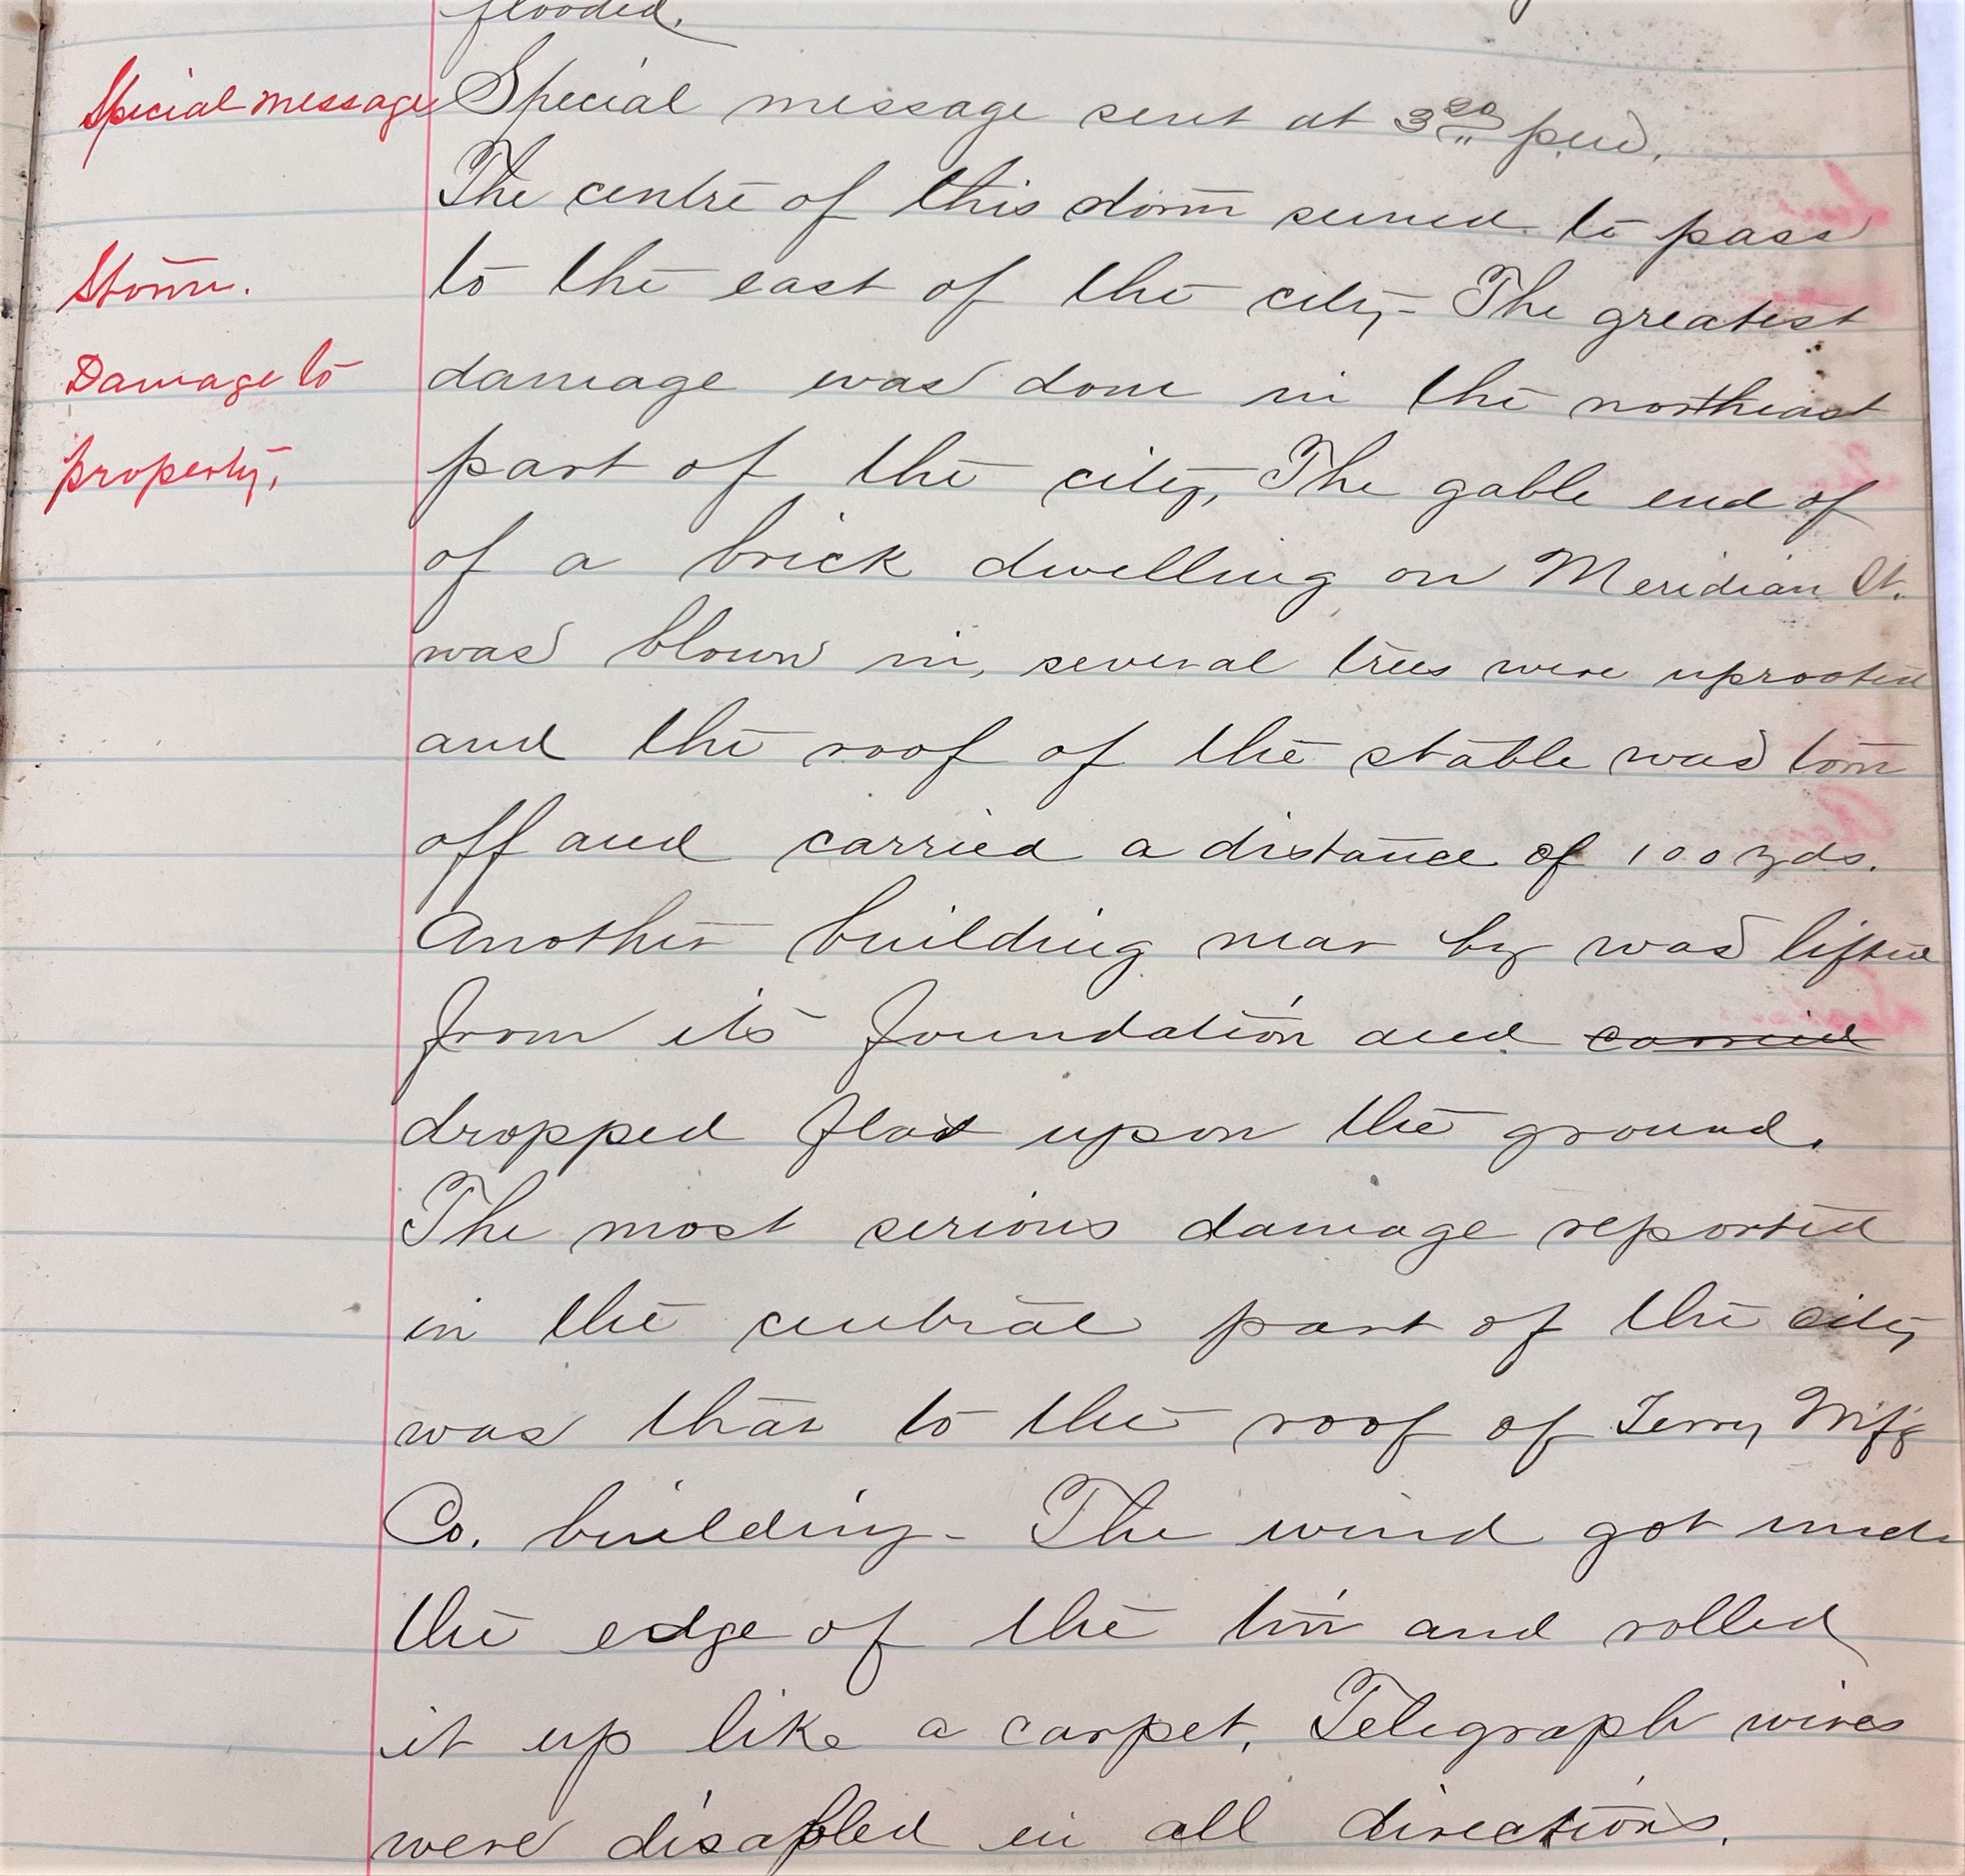 flooded.
Special message Special message sent at 3 20 p.m.
The centre of this storm seemed to pass
Storm. to the east of the city - The greatest
Damage to damage was done in the northeast
property. part of the city, The gable end of
of a brick dwelling on Meridian St.
was blown in, several trees were uprooted
and the roof of the stable was torn
off and carried a distance of 100 yds.
Another building near by was lifted
from its foundation and carried
dropped flat upon the ground.
The most serious damage reported
in the central part of the city
was that to the roof of Terry M'f'g
Co. building - The wind got under
the edge of the tin and rolled
it up like a carpet. Telegraph wires
were disabled in all directions.